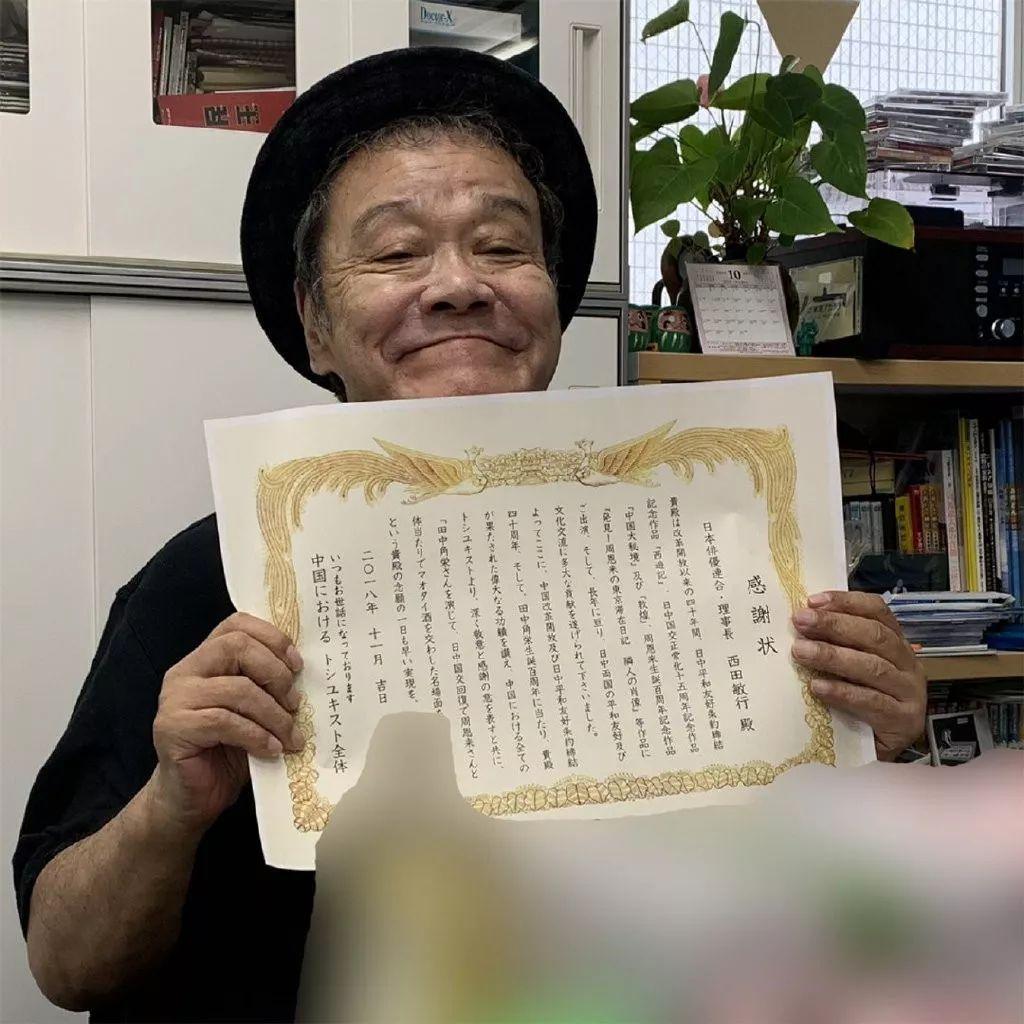 感謝状
日本俳優連合・理事長　西田敏行　殿
貴殿は改革開放以来の四十年間、日中平和友好条約締結
記念作品「西遊記」、日中国交正常化十五周年記念作品
「中国大秘境」及び「敦煌」、周恩来生誕百周年記念作品
「発見！周恩来の東京滞在日記　隣人の肖像」等作品に
ご出演、そして、長年に亘り、日中両国の平和友好及び
文化交流に多大な貢献を遂げられて下さいました。
よってここに、中国改革開放及び日中平和友好条約締結
四十周年、そして、田中角栄生誕百周年に当たり、貴殿
が果たされた偉大なる功績を讃え、中国における全ての
トシユキストより、深く敬意と感謝の意を表すと共に、
「田中角栄さんを演じて、日中国交回復で周恩来さんと
体当たりでマオタイ酒を交わした名場面を
という貴殿の念願の一日も早い実現を、
二〇一八年　十一月　吉日
いつもお世話になっております
中国における　トシユキスト全体
Doctor-X
10